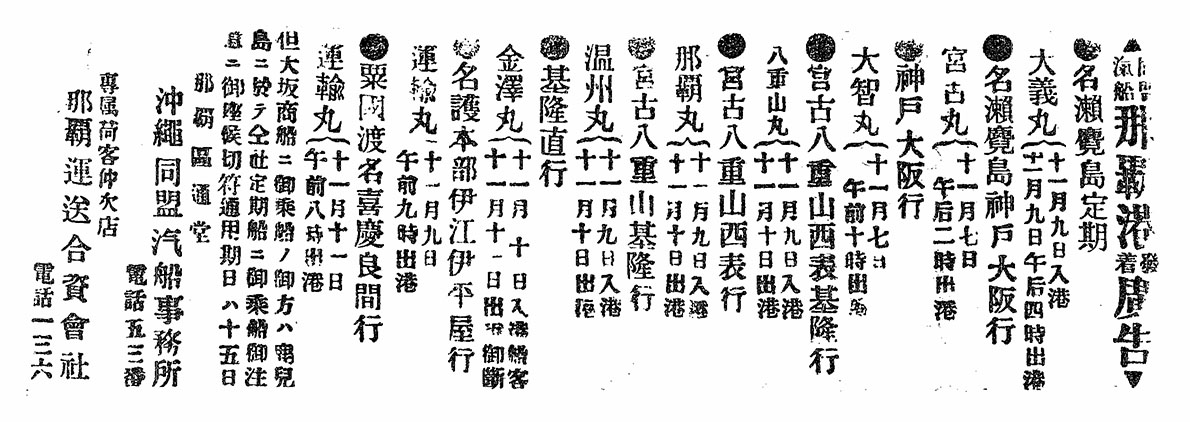 ▲同盟汽船 那覇港發着廣告▼
●名瀨鹿兒島定期
大義丸 十一月九日入港
十一月九日午后四時出港
●名瀨鹿兒島神戸大阪行
宮古丸 十一月七日
午后二時出港
●神戸大阪行
大智丸 十一月七日
午前十時出港
●宮古八重山西表基隆行
八重山丸 十一月九日入港
十一月十日出港
●宮古八重山西表行
那覇丸 十一月九日入港
十一月十日出港
●宮古八重山基隆行
温州丸 十一月九日入港
十一月十日出港
●基隆直行
金澤丸 十一月十日入港船客
十一月十一日出港御斷
●名護本部伊江伊平屋行
運輸丸 十一月九日
午前九時出港
●粟國渡名喜慶良間行
運輸丸 十一月十一日
午前八時出港
但大坂商船ニ御乘船ノ御方ハ鹿兒
島ニ於テ仝社定期船ニ御乘船御注
意ニ御座候切符通用期日ハ十五日
那覇區通堂
沖繩同盟汽船事務所
電話五三番
專属荷客仲次店
那覇運送合資會社
電話一三六